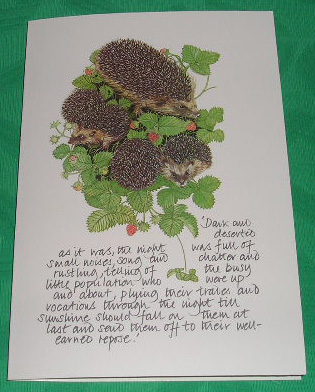 'Dark and
deserted
as it was, the night was full of
small noises, song and chatter and
rustling, telling of the busy
little population who were up
and about, plying their trades and
vocations through the night till
sunshine should fall on them at
last and send them off to their well-
earned repose.'